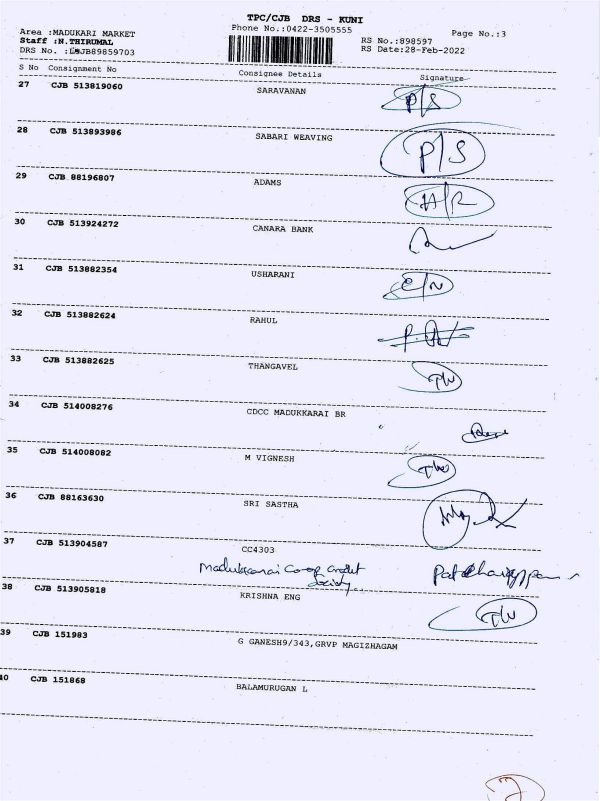 TPC/CJB DRS - KUNI
Phone No.:0422-3505555
Area :MADUKARI MARKET
Staff :N.THIRUMAL
DRS No. :CJB89859703
RS No.:898597
RS Date:28-Feb-2022
Page No.:3
S No Consignment No Consignee Details Signature
27 CJB 513819060 SARAVANAN P/S
28 CJB 513893986 SABARI WEAVING P/S
29 CJB 88196807 ADAMS
30 CJB 513924272 CANARA BANK
31 CJB 513882354 USHARANI
32 CJB 513882624 RAHUL
33 CJB 513882625 THANGAVEL
34 CJB 514008276 CDCC MADUKKARAI BR
35 CJB 514008082 M VIGNESH
36 CJB 88163630 SRI SASTHA
37 CJB 513904587 CC4303
Madukkarai Co-op credit
Society
38 CJB 513905818 KRISHNA ENG
39 CJB 151983 G GANESH9/343,GRVP MAGIZHAGAM
40 CJB 151868 BALAMURUGAN L